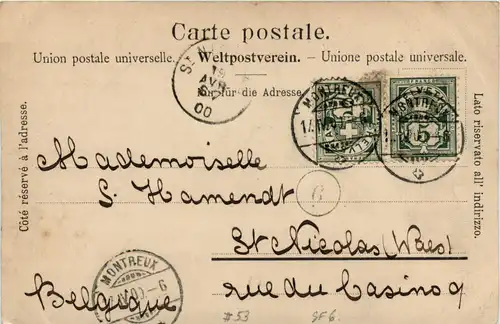 Carte postale.
Union postale universelle. Weltpostverein. - Unione postale universale.
Nur für die Adresse.
Côté réservé à l'adresse.
Lato riservato all' indirizzo.
HELVETIA
5
MONTREUX
MONTREUX
Mademoiselle
S. Hamendt
G
St Nicolas (Waes)
rue du Casino 9
Belgique
MONTREUX
#53